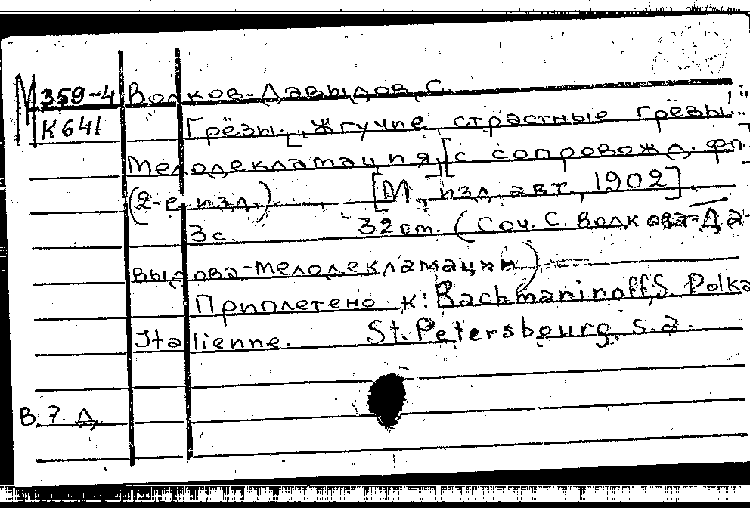 М 359-4 Волков-Давыдов, С.
К641 Грёзы. [„Жгучие, страстные грёзы!.."
Мелодекламация, [с сопровожд. фп.
(2-е изд.) [М., изд. авт., 1902].
3 с. 32 см. (Соч. С. Волкова-Да-
выдова-мелодекламации)
Приплетено к: Rachmaninoff, S. Polka
Italienne. St. Petersbourg, s.a.
В. 7. Д.